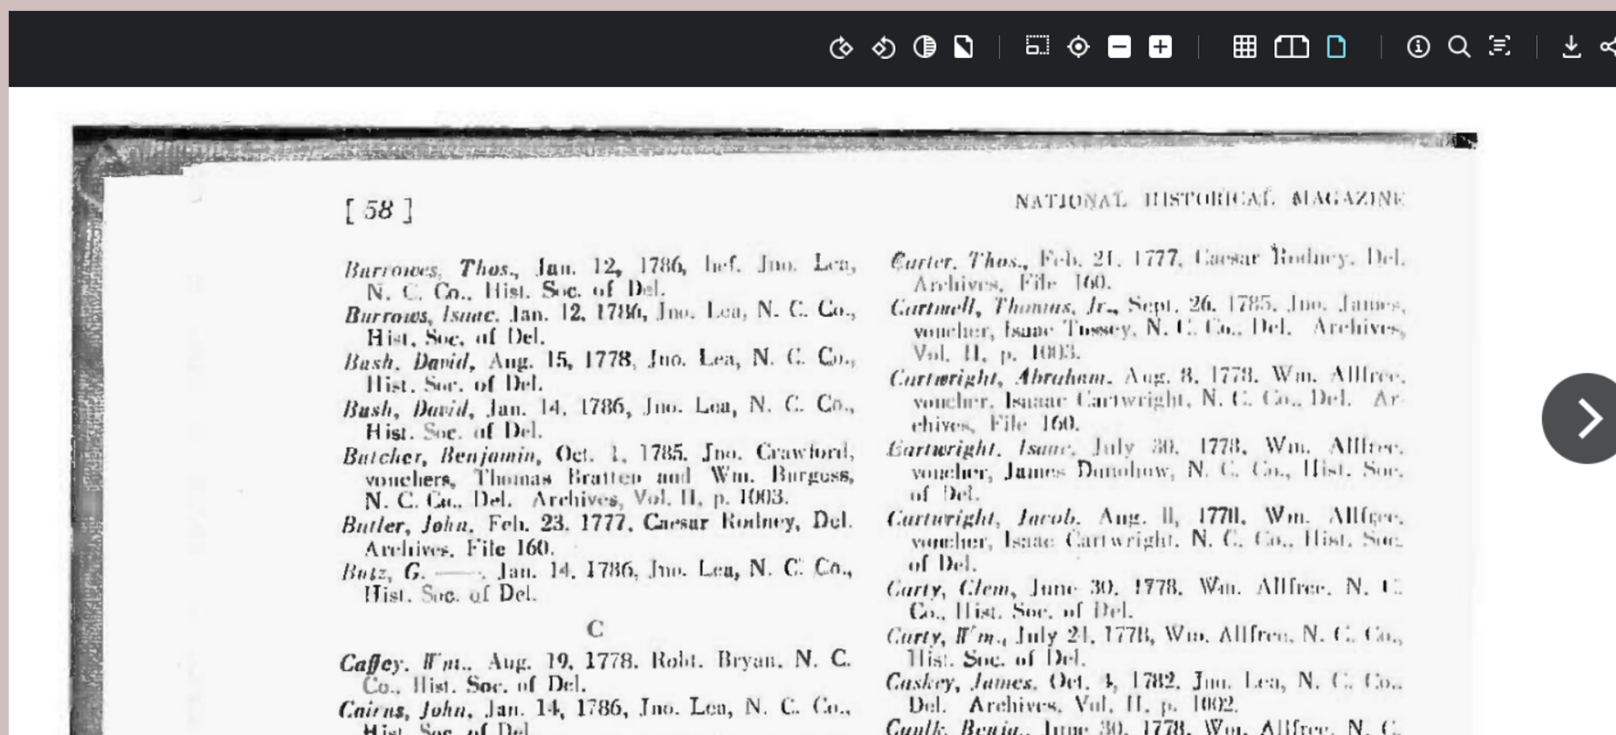 [ 58 ]
NATIONAL HISTORICAL MAGAZINE
Burrowes, Thos., Jan. 12, 1786, bef. Jno. Lea,
N. C. Co., Hist. Soc. of Del.
Burrows, Isaac, Jan. 12, 1786, Jno. Lea, N. C. Co.,
Hist. Soc. of Del.
Bush, David, Aug. 15, 1778, Jno. Lea, N. C. Co.,
Hist. Soc. of Del.
Bush, David, Jan. 14, 1786, Jno. Lea, N. C. Co.,
Hist. Soc. of Del.
Butcher, Benjamin, Oct. 1, 1785, Jno. Crawford,
vouchers, Thomas Bratten and Wm. Burgess,
N. C. Co., Del. Archives, Vol. II, p. 1003.
Butler, John, Feb. 23, 1777, Caesar Rodney, Del.
Archives, File 160.
Butz, G. ——, Jan. 14, 1786, Jno. Lea, N. C. Co.,
Hist. Soc. of Del.
C
Caffey, Wm., Aug. 19, 1778, Robt. Bryan, N. C.
Co., Hist. Soc. of Del.
Cairns, John, Jan. 14, 1786, Jno. Lea, N. C. Co.,
Hist. Soc. of Del.
Carter, Thos., Feb. 21, 1777, Caesar Rodney, Del.
Archives, File 160.
Cartmell, Thomas, Jr., Sept. 26, 1785, Jno. James,
voucher, Isaac Tussey, N. C. Co., Del. Archives,
Vol. II, p. 1003.
Cartwright, Abraham, Aug. 8, 1778, Wm. Allfree,
voucher, Isaaac Cartwright, N. C. Co., Del. Ar-
chives, File 160.
Cartwright, Isaac, July 30, 1778, Wm. Allfree,
voucher, James Donohow, N. C. Co., Hist. Soc.
of Del.
Cartwright, Jacob, Aug. 1778, Wm. Allfree,
voucher, Isaac Cartwright, N. C. Co., Hist. Soc.
of Del.
Carty, Clem, June 30, 1778, Wm. Allfree, N. C.
Co., Hist. Soc. of Del.
Carty, Wm., July 21, 1778, Wm. Allfree, N. C. Co.,
Hist. Soc. of Del.
Caskey, James, Oct. 4, 1782, Jno. Lea, N. C. Co.,
Del. Archives, Vol. II, p. 1002.
Caulk, Benja., June 30, 1778, Wm. Allfree, N. C.